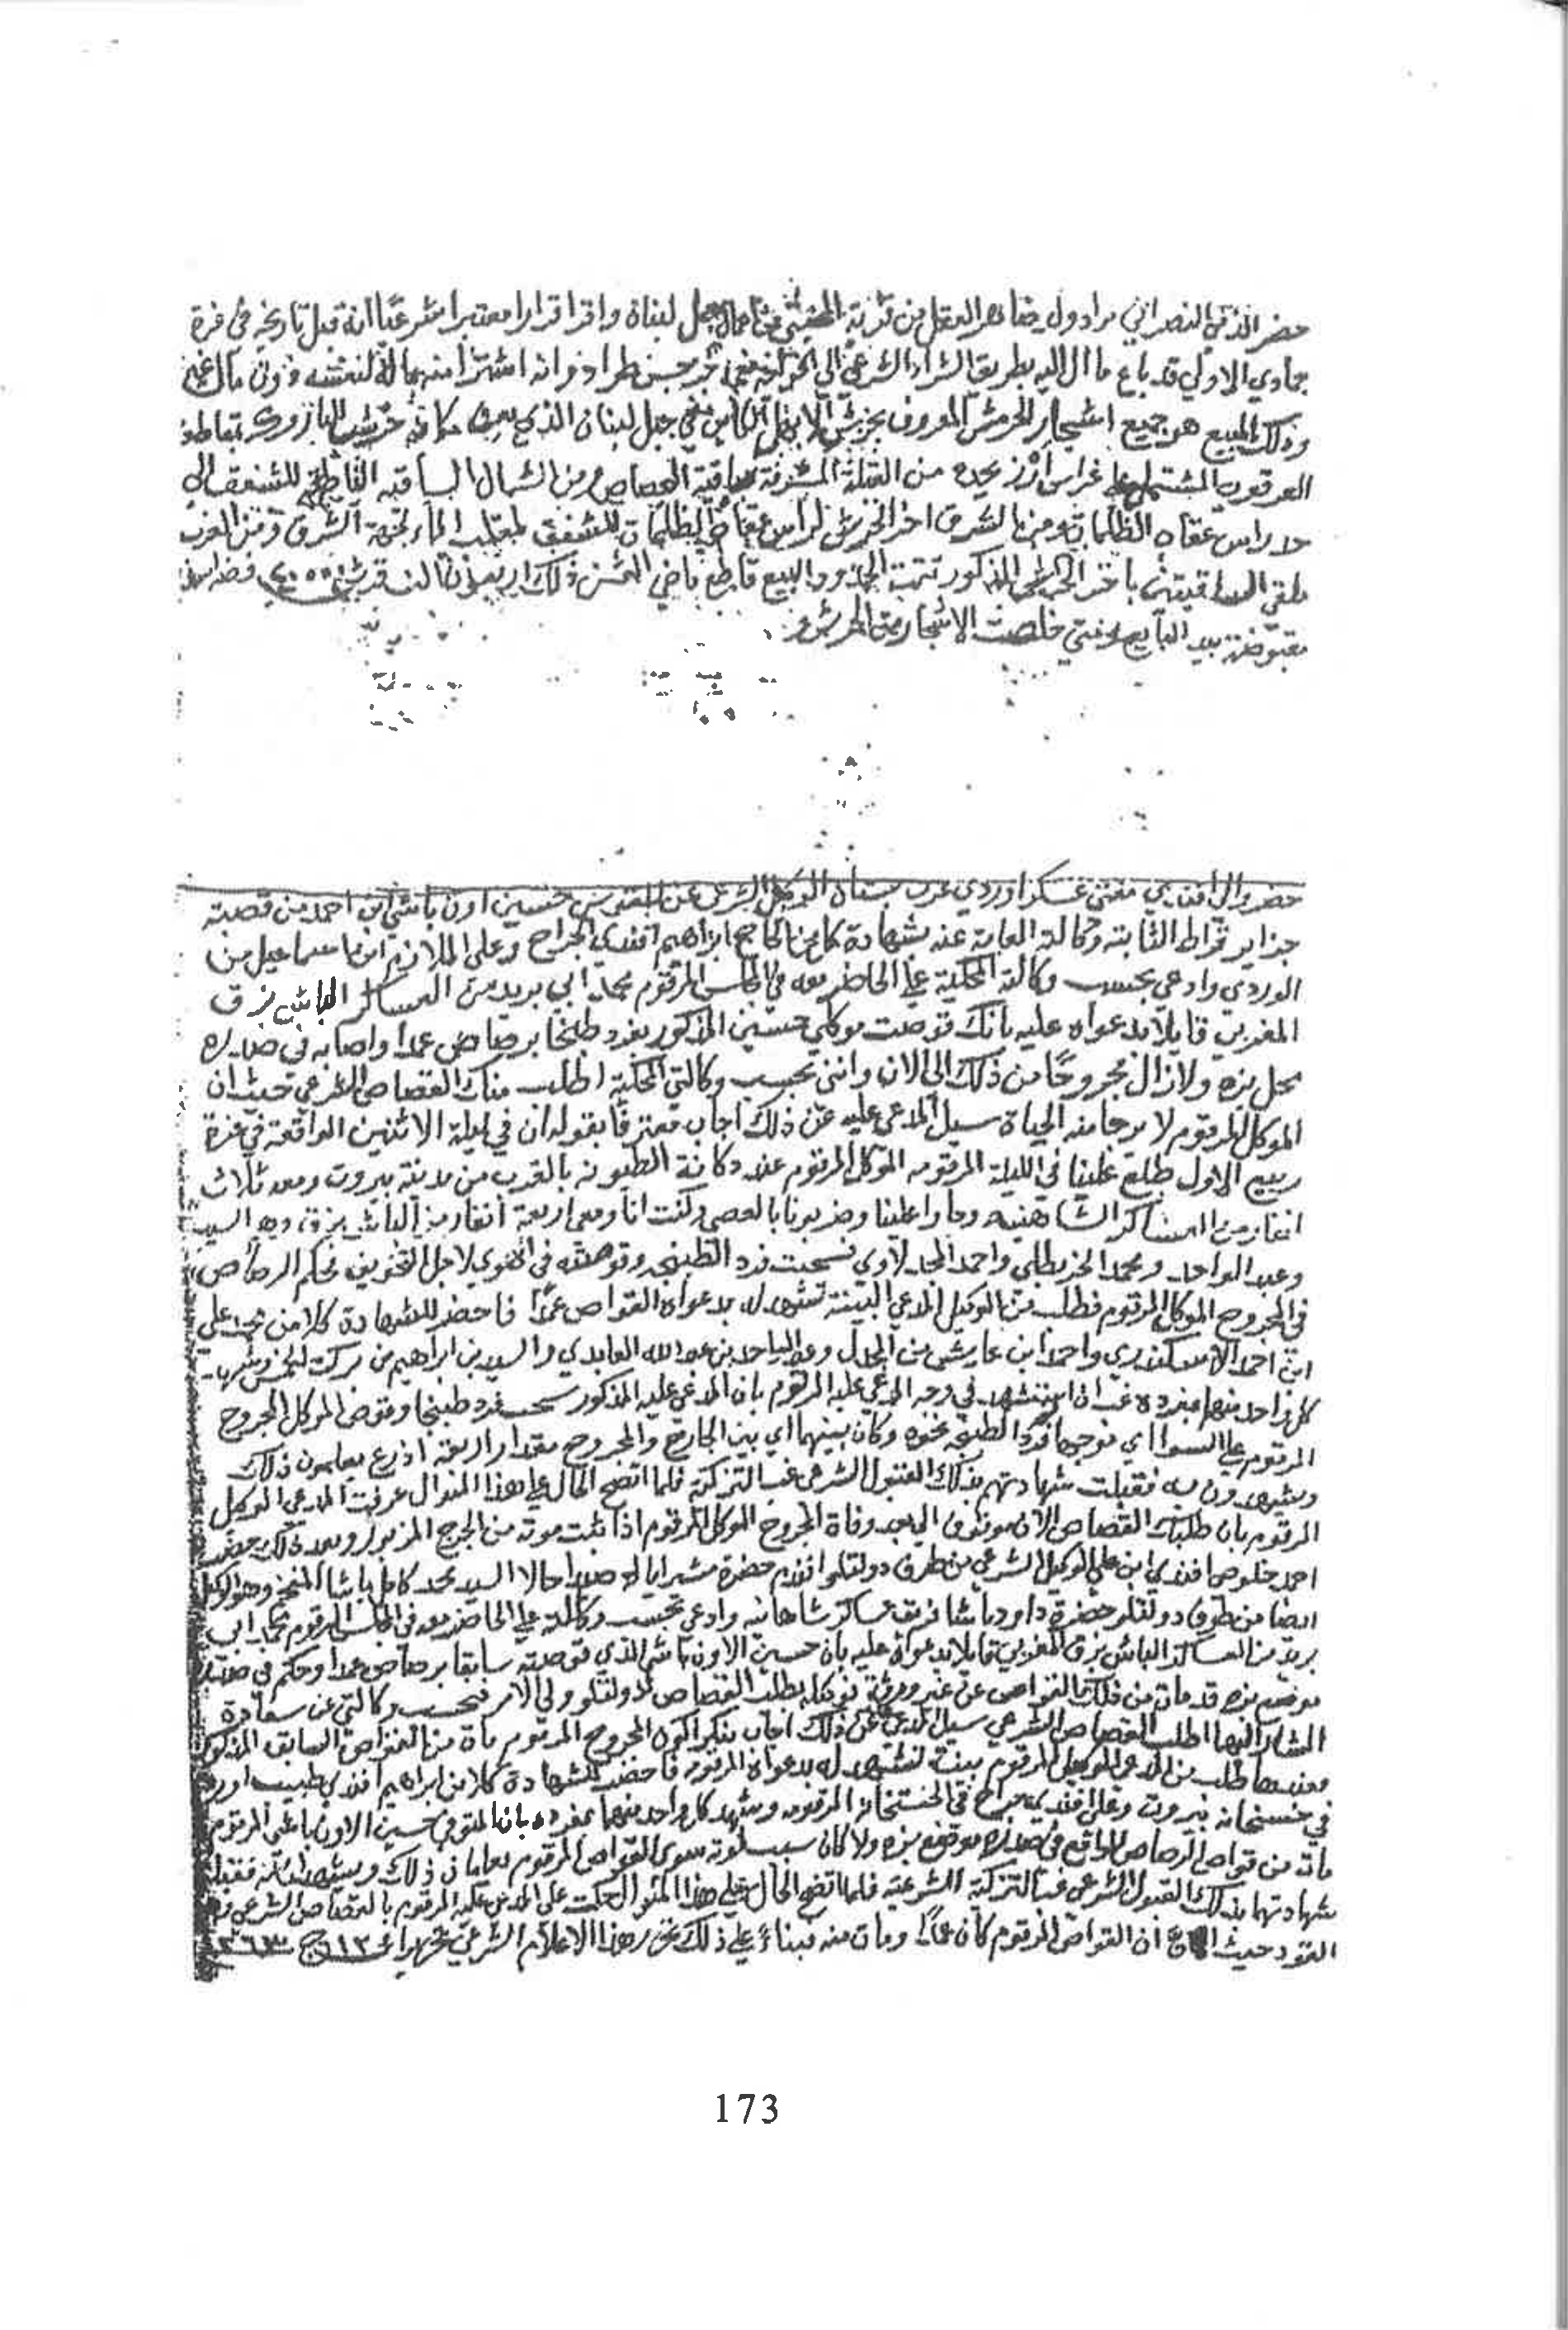 حضر الذمي النصراني مراد ول يضاهر العقل من قرية من اعمال جبل لبنان واقر اقرارا معتبرا شرعيًا انه قبل تاريخه في غرة
جمادي الاولي قد باع ما ال اليه بطريق الشراء الشرعي الي حسن طراد وانه اشترا منه بماله لنفسه دون مال غيره
وذلك المبيع هو جميع اشجار الحرش المعروف بحرش الكاين في جبل لبنان الذي
العرقوب المشتمل علي غراس ارز يحده من القبلة المشرفة ساقية ومن الشمال الساقيه
راس عقاه الظلمات ومن الشرق اخر الحرش لجهة الشرق ومن الغرب
ملقي الساقيتين باخر الحرش المذكور تتمت الحدود البيع قاطع ماضي الثمن ذلك الف قرش
مقبوضة بيد البايع خلصت الاشجار الحرش
حضر افندي مفتي عسكر اوردي عرب بستان الوكيل الشرعي عن حسين اون باشي ابن احمد من قصبة
جزاير الثابته وكالته العامة عنه بشهادة كل من الحاج ابراهيم افندي الجراح وعلي الملازم ابن اسماعيل من
الوردي وادعي بحسب وكالته المحكية علي الحاضر معه في المجلس المرقوم محمد ابي بريد من العساكر الباش بزق
المغربي قايلا بدعواه عليه بانك قوصت موكلي حسين المذكور بفرد طبنجا برصاص عمدا واصابه في صدره
محل بزه ولا زال مجروحًا من ذلك الي الان وانني بحسب وكالتي المحكية اطلب منك القصاص الشرعي حيث ان
الموكل المرقوم لا يرجا منه الحياة سيل المدعي عليه عن ذلك اجاب معترفًا بقوله ان في ليلة الاثنين الواقعة في غرة
ربيع الاول طلع علينا في الليلة المرقومه الموكل المرقوم عند دكانة الطيونه بالقرب من مدينة بيروت ومعه ثلاث
انفار من العساكر الشاهنيه وجاروا علينا وضربونا بالعصي وكنت انا ومعي اربعة انفار من الباش بزق وهم السيد
وعبد الواحد ومحمد واحمد فسحبت فرد الطبنجه وقوصته في لاجل التخويف فحكم الرصاص
في المجروح الموكل المرقوم فطلب من الوكيل المدعي البينة تشهد له بدعواه القواص عمدًا فاحضر للشهادة كلا من علي
ابن احمد الاسكندري واحمد ابن عايش من المجدل وعبد الواحد بن عبد الله العابدي والسيد بن ابراهيم من بركت
كل واحد منهم بمفرده غب ان استشهد في وجه المدعي عليه المرقوم بان المدعي عليه المذكور سحب فرد طبنجا وقوص الموكل المجروح
المرقوم علي السوا اي موجها فرد الطبنجه نحوه وكان بينهما اي بين الجارح والمجروح مقدار اربعة اذرع يعلمون ذلك
ويشهدون به فقبلت شهادتهم بذلك القبول الشرعي غب التزكية فلما اتضح الحال علي هذا المنوال عرفت المدعي الوكيل
المرقوم بان طلبك القصاص الان موقوف الي بعد وفاة المجروح الموكل المرقوم اذا ثبت موته من الجرح المزبور وبعد ذلك حضر
احمد خلوصي افندي ابن علي الوكيل الشرعي من طرف دولتلو افندم حضرة مشير ايالة صيدا حالا السيد محمد كامل باشا المفخم وهو الوكيل
ايضا من طرف دولتلو حضرة داود باشا فريق عساكر شاهانيه وادعي بحسب وكالته علي الحاضر معه في المجلس المرقوم محمد ابي
بريد من العساكر الباش بزق المغربي قايلا بدعواه عليه بان حسين الاون باشي الذي قوصته سابقا برصاص عمدا وحكم في صدره
موضع بزه قد مات من ذلك القواص عن غير ورثة بطلب القصاص لدولتلو ولي الامر فبحسب وكالتي عن سعادة
المشار اليهما اطلب القصاص الشرعي سيل المدعي عن ذلك اجاب منكرا كون المجروح المرقوم مات من القواص السابق المذكور
فعندها طلب من المدعي الوكيل المرقوم بينة تشهد له بدعواه المرقومه فاحضر للشهادة كلا من ابراهيم افندي طبيب
في خستخانه بيروت وعلي افندي جراح في الخستخانه المرقومه وشهد كل واحد منهما بمفرده بان المتوفي حسين الاون باشي المرقوم
مات من قواص الرصاص الواقع في صدره موضع بزه ولا كان سبب لموته سوي القواص المرقوم يعلمان ذلك ويشهدان به فقبلت
شهادتهما بذلك القبول الشرعي غب التزكية الشرعيه فلما اتضح الحال علي هذا المنوال حكمت علي المدعي عليه المرقوم بالقصاص الشرعي
القود حيث ان القواص المرقوم كان عمدًا ومات منه وبناءً علي ذلك تحرر هذا الاعلام الشرعي تحريرا في ١٢ ج
173